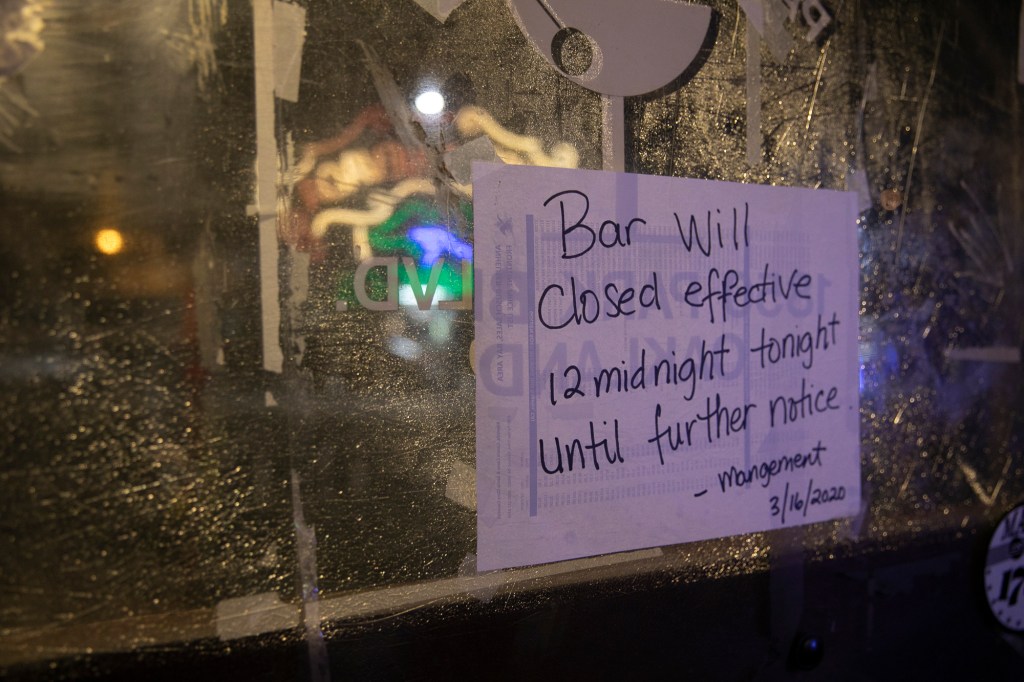 Bar Will
Closed effective
12 midnight tonight
until further notice.
- mangement
3/16/2020
BLVD.
OAKLAND
17